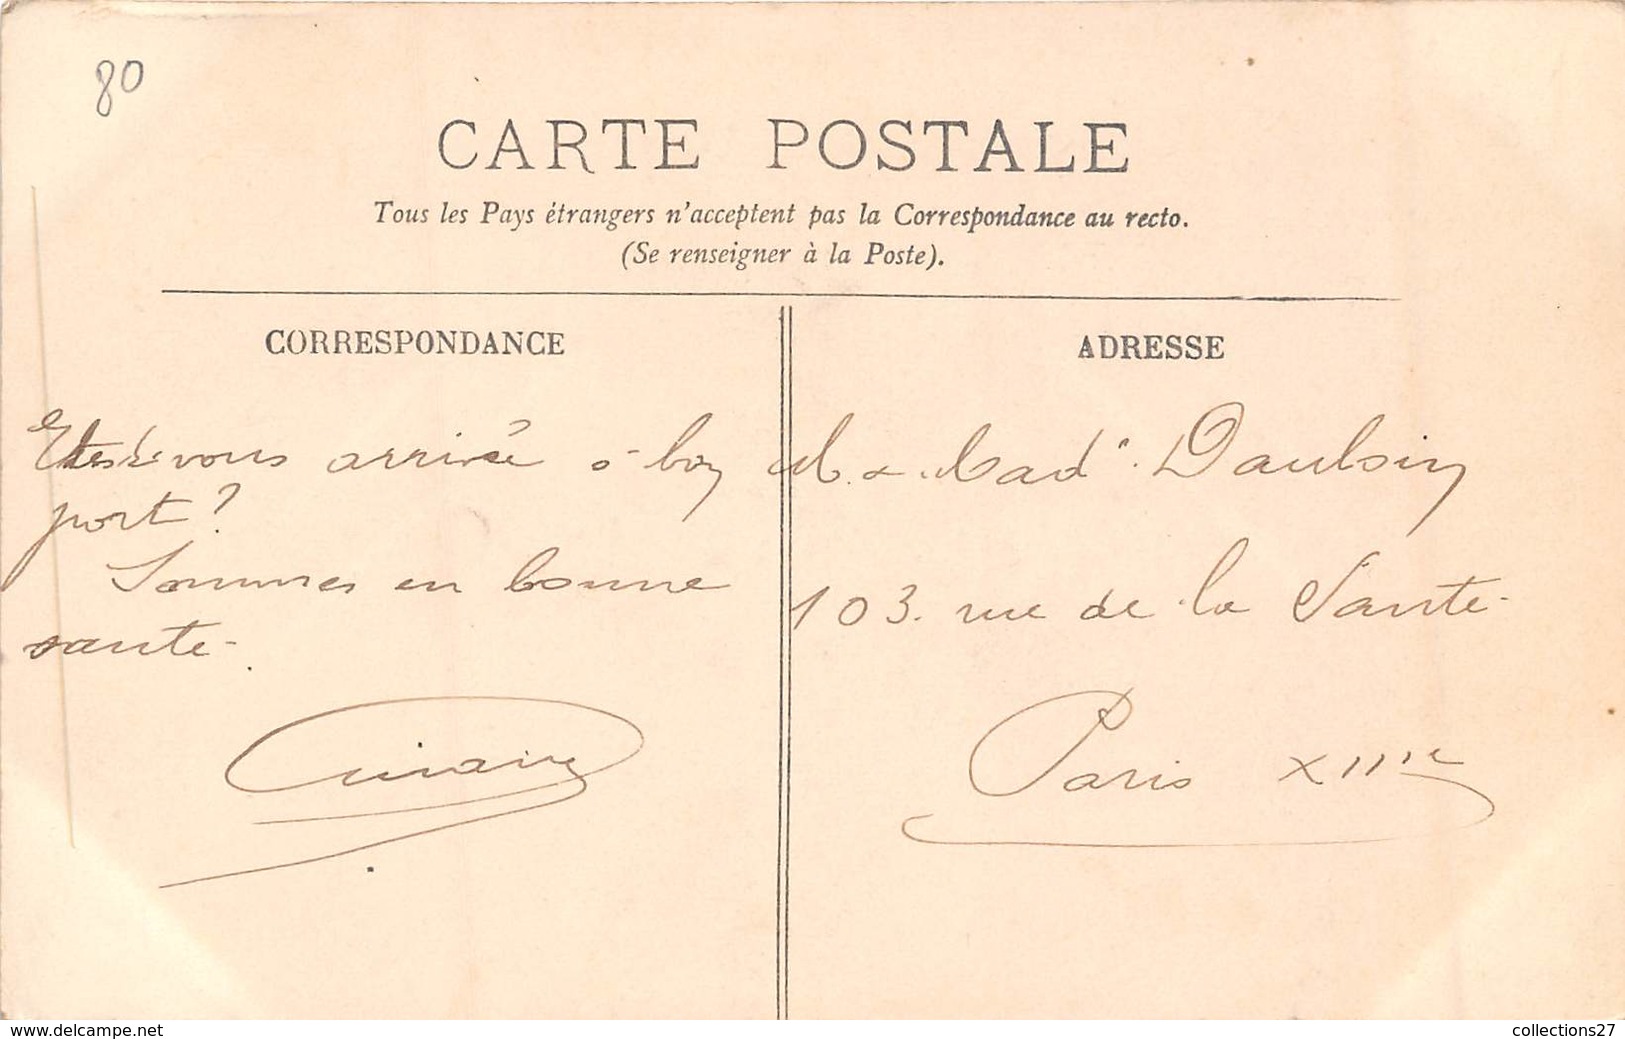 80
CARTE POSTALE
Tous les Pays étrangers n'acceptent pas la Correspondance au recto.
(Se renseigner à la Poste).
CORRESPONDANCE
Etes-vous arrivé à bon
port ?
Sommes en bonne
sante
ADRESSE
M. & Mad
103. rue de la Sante
Paris XIIIe
www.delcampe.net
collections27